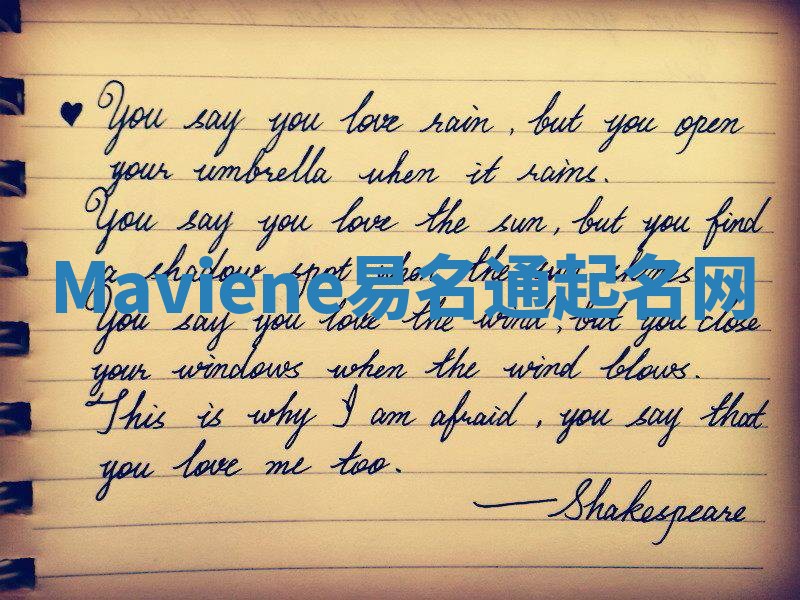 ♥ You say you love rain, but you open
your umbrella when it rains.
You say you love the sun, but you find
a shadow spot when the sun shines
Maviene易名通起名网
You say you love the wind, but you close
your windows when the wind blows.
This is why I am afraid, you say that
you love me too.
—Shakespeare